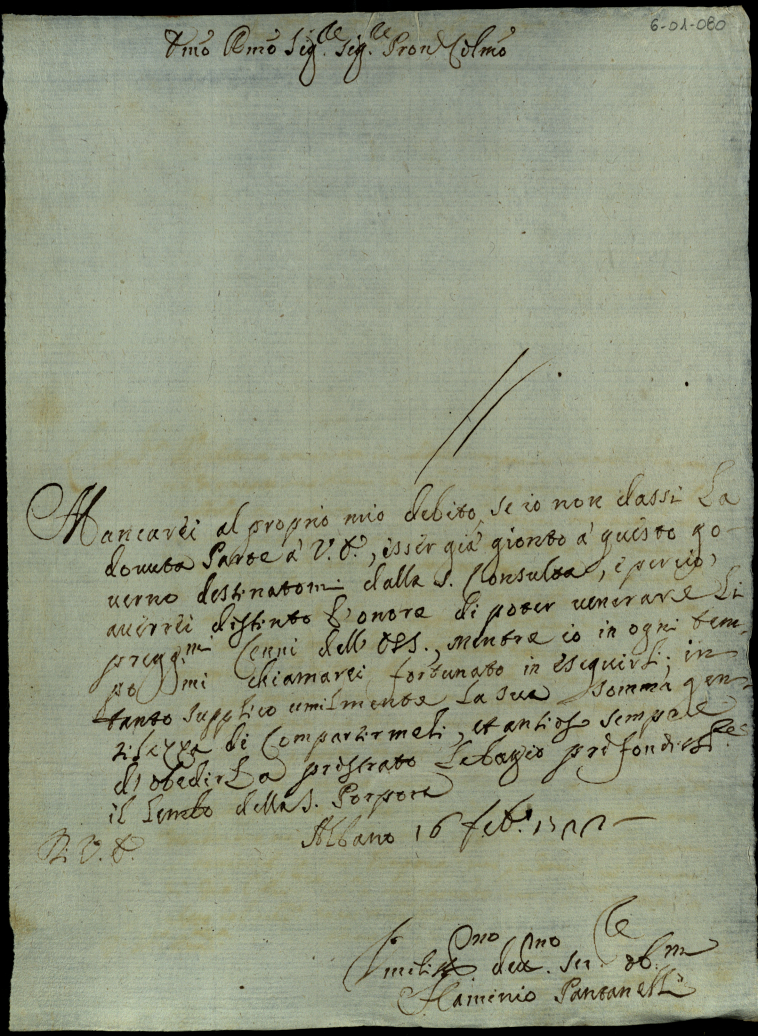 6-01-080
Emo Rmo Sig.re Sig.re Pron Colmo
Mancarei al proprio mio debito, se io non dassi La
dovuta Parte à V. E., esser già gionto à questo go-
verno destinatomi dalla S. Consulta, e perciò,
averei distinto L'onore di poter venerare Li
preggmi Cenni dell' , mentre io in ogni tem-
po mi chiamarei fortunato in eseguirli; in
tanto supplico umilmente La sua somma gen-
tilezza di Compartirmeli, et antioso sempre
d'obedirLa prostrato Le bagio
il Lembo della S. Porpora
Albano 16 Feb.
D. V. E.
Flaminio Pantanelli